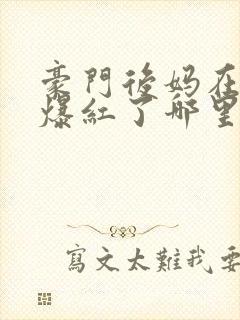 豪門後媽在
爆紅了哪里
寫文太難我要